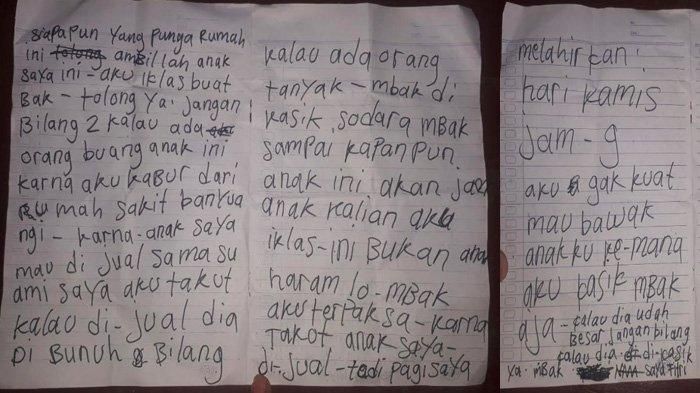 siapapun yang punga Rumah
ini tolong ambillah anak
saya ini - aku iklas buat
Bak - tolong ya. jangan
Bilang 2 kalau ada
orang buang anak ini
karna aku kabur dari
Rumah sakit banyua
ngi - karna - anak saya
mau di jual sama su
ami saya aku takut
kalau di - jual dia
Di Bunuh Bilang
kalau ada orang
tanyak - mbak di
kasik sodara mBak
sampai kapanpun
anak ini akan
anak kalian aku
iklas - ini BUKAN
haram lo - mBak
aku terpaksa - karna
Takot anak saya -
di - jual - tadi pagi saya
melahirkan
hari kamis
Jam - 9
aku gak kuat
mau bawak
anakku ke - mana
aku kasik mBak
aja - kalau dia udah
Besar jangan bilang
kalau dia di - kasik
ya. mBak saya Fitri